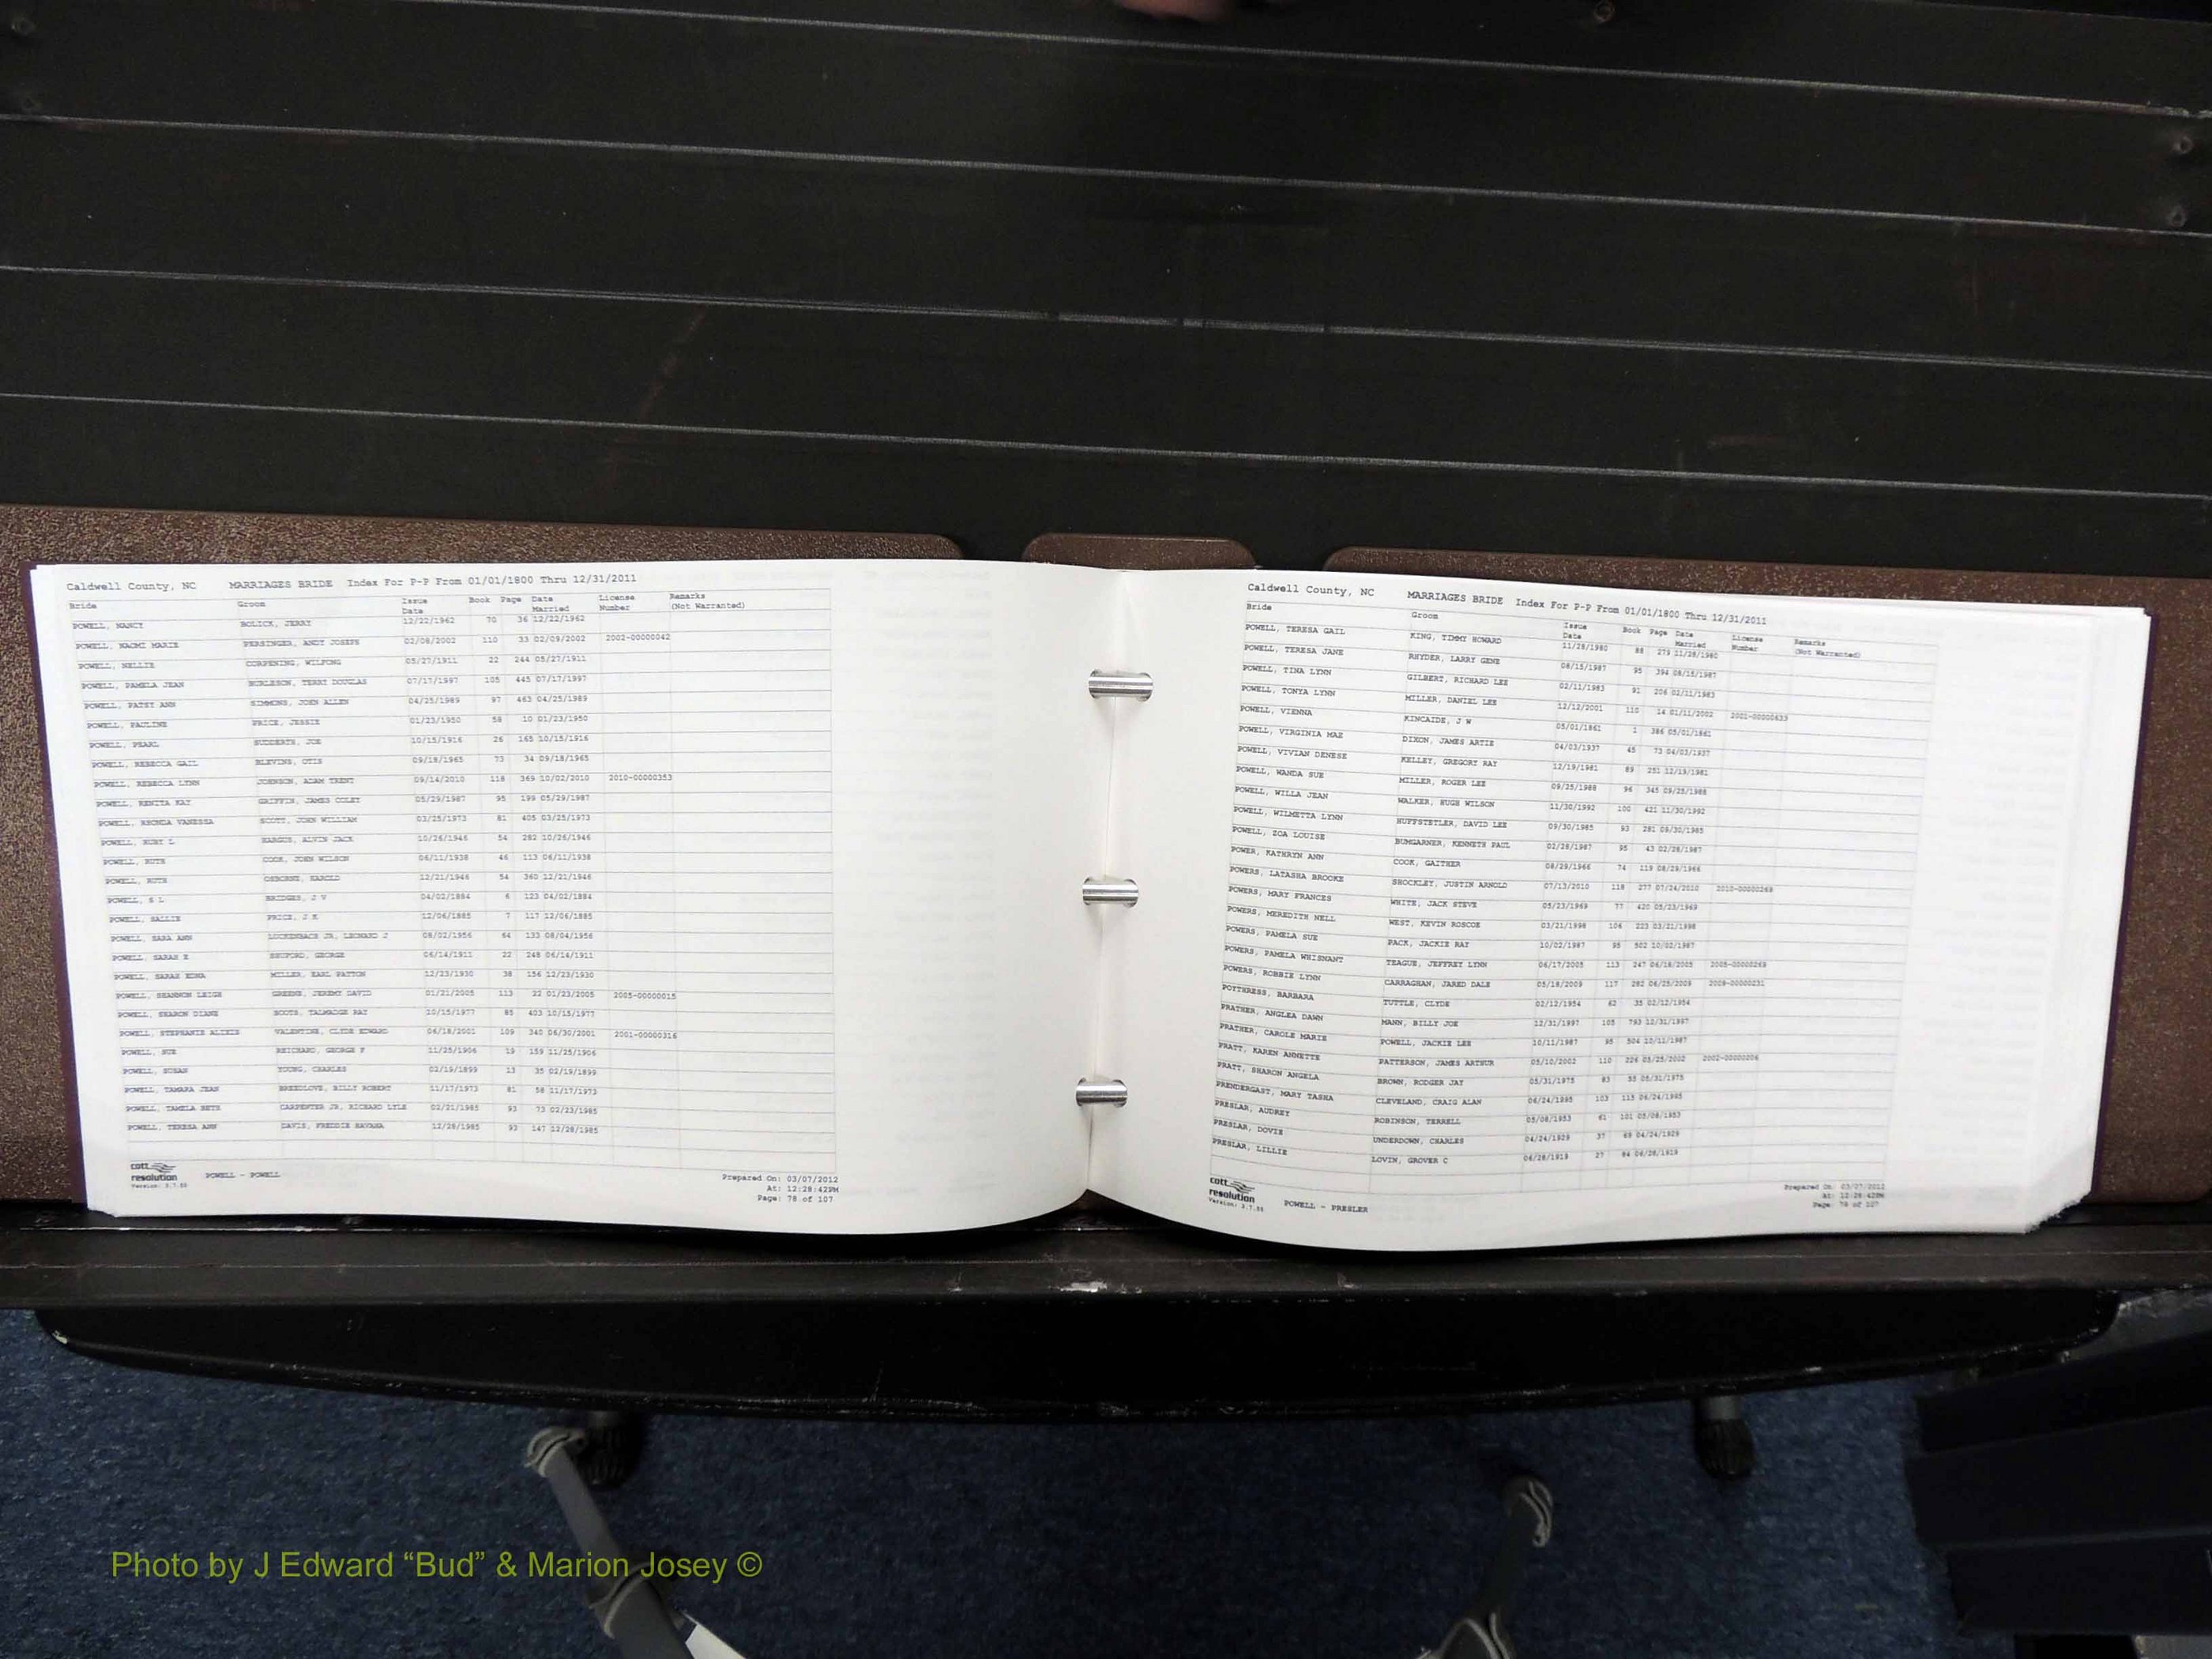 Caldwell County, NC MARRIAGES BRIDE Index For P-P From 01/01/1800 Thru 12/31/2011
Bride Groom Issue Date Book Page Date Married License Number Remarks (Not Warranted)
POWELL, NANCY BOLICK, JERRY 12/22/1962 70 36 12/22/1962
POWELL, NAOMI MARIE PERSINGER, ANDY JOSEPH 02/08/2002 110 33 02/09/2002 2002-00000042
POWELL, NELLIE CORPENING, WILFONG 05/27/1911 22 244 05/27/1911
POWELL, PAMELA JEAN BURLESON, TERRY DOUGLAS 07/17/1997 105 445 07/17/1997
POWELL, PATSY ANN SIMMONS, JOHN ALLEN 04/25/1989 97 463 04/25/1989
POWELL, PAULINE PRICE, JESSIE 01/23/1950 58 10 01/23/1950
POWELL, PEARL SUDDERTH, JOE 10/15/1916 26 165 10/15/1916
POWELL, REBECCA GAIL BLEVINS, OTIS 09/18/1965 73 34 09/18/1965
POWELL, REBECCA LYNN JOHNSON, ADAM TRENT 09/14/2010 118 369 10/02/2010 2010-00000353
POWELL, RENITA KAY GRIFFIN, JAMES COLEY 05/29/1987 95 199 05/29/1987
POWELL, RHONDA VANESSA SCOTT, JOHN WILLIAM 03/25/1973 81 405 03/25/1973
POWELL, RUBY L HARGUS, ALVIN JACK 10/26/1946 54 282 10/26/1946
POWELL, RUTH COOK, JOHN WILSON 06/11/1938 46 113 06/11/1938
POWELL, RUTH OSBORNE, HAROLD 12/21/1946 54 360 12/21/1946
POWELL, S L BRIDGES, J V 04/02/1884 6 123 04/02/1884
POWELL, SALLIE PRICE, J K 12/06/1885 7 117 12/06/1885
POWELL, SARA ANN LUCKENBACH JR, LEONARD J 08/02/1956 64 133 08/04/1956
POWELL, SARAH E SHUFORD, GEORGE 06/14/1911 22 248 06/14/1911
POWELL, SARAH EDNA MILLER, EARL PATTON 12/23/1930 38 156 12/23/1930
POWELL, SHANNON LEIGH GREENE, JEREMY DAVID 01/21/2005 113 22 01/23/2005 2005-00000015
POWELL, SHARON DIANE ROOTS, TALMADGE RAY 10/15/1977 85 403 10/15/1977
POWELL, STEPHANIE ALEXIS VALENTINE, CLYDE EDWARD 06/18/2001 109 340 06/30/2001 2001-00000316
POWELL, SUE REICHARD, GEORGE F 11/25/1906 19 159 11/25/1906
POWELL, SUSAN YOUNG, CHARLES 02/19/1899 13 35 02/19/1899
POWELL, TAMARA JEAN BREEDLOVE, BILLY ROBERT 11/17/1973 81 58 11/17/1973
POWELL, TAMELA BETH CARPENTER JR, RICHARD LYLE 02/21/1985 93 73 02/23/1985
POWELL, TERESA ANN DAVIS, FREDDIE HAVANA 12/28/1985 93 147 12/28/1985
cott resolution Version: 3.7.88
POWELL - POWELL
Prepared On: 03/07/2012
At: 12:28:42PM
Page: 78 of 107
Caldwell County, NC MARRIAGES BRIDE Index For P-P From 01/01/1800 Thru 12/31/2011
Bride Groom Issue Date Book Page Date Married License Number Remarks (Not Warranted)
POWELL, TERESA GAIL KING, TIMMY HOWARD 11/28/1980 88 279 11/28/1980
POWELL, TERESA JANE RHYDER, LARRY GENE 08/15/1987 95 394 08/15/1987
POWELL, TINA LYNN GILBERT, RICHARD LEE 02/11/1983 91 206 02/11/1983
POWELL, TONYA LYNN MILLER, DANIEL LEE 12/12/2001 110 14 01/11/2002 2001-00000633
POWELL, VIENNA KINCAIDE, J W 05/01/1861 1 386 05/01/1861
POWELL, VIRGINIA MAE DIXON, JAMES ARTIE 04/03/1937 45 73 04/03/1937
POWELL, VIVIAN DENESE KELLEY, GREGORY RAY 12/19/1981 89 251 12/19/1981
POWELL, WANDA SUE MILLER, ROGER LEE 09/25/1988 96 345 09/25/1988
POWELL, WILLA JEAN WALKER, HUGH WILSON 11/30/1992 100 421 11/30/1992
POWELL, WILMETTA LYNN HUFFSTETLER, DAVID LEE 09/30/1985 93 281 09/30/1985
POWELL, ZOA LOUISE BUMGARNER, KENNETH PAUL 02/28/1987 95 43 02/28/1987
POWER, KATHRYN ANN COOK, GAITHER 08/29/1966 74 119 08/29/1966
POWERS, LATASHA BROOKE SHOCKLEY, JUSTIN ARNOLD 07/13/2010 118 277 07/24/2010 2010-00000268
POWERS, MARY FRANCES WHITE, JACK STEVE 05/23/1969 77 420 05/23/1969
POWERS, MEREDITH NELL WEST, KEVIN ROSCOE 03/21/1998 106 223 03/21/1998
POWERS, PAMELA SUE PACK, JACKIE RAY 10/02/1987 95 502 10/02/1987
POWERS, PAMELA WHISNANT TEAGUE, JEFFREY LYNN 06/17/2005 113 247 06/18/2005 2005-00000269
POWERS, ROBBIE LYNN CARRAGHAN, JARED DALE 05/18/2009 117 282 06/25/2009 2009-00000231
POYTHRESS, BARBARA TUTTLE, CLYDE 02/12/1954 62 35 02/12/1954
PRATHER, ANGLEA DAWN MANN, BILLY JOE 12/31/1997 105 793 12/31/1997
PRATHER, CAROLE MARIE POWELL, JACKIE LEE 10/11/1987 95 504 10/11/1987
PRATT, KAREN ANNETTE PATTERSON, JAMES ARTHUR 05/10/2002 110 226 05/25/2002 2002-00000206
PRATT, SHARON ANGELA BROWN, RODGER JAY 05/31/1975 83 55 05/31/1975
PRENDERGAST, MARY TASHA CLEVELAND, CRAIG ALAN 06/24/1995 103 115 06/24/1995
PRESLAR, AUDREY ROBINSON, TERRELL 05/08/1953 61 101 05/08/1953
PRESLAR, DOVIE UNDERDOWN, CHARLES 04/24/1929 37 69 04/24/1929
PRESLAR, LILLIE LOVIN, GROVER C 06/28/1919 27 84 06/28/1919
cott resolution Version: 3.7.88
POWELL - PRESLER
Prepared On: 03/07/2012
At: 12:28:42PM
Page: 79 of 107
Photo by J Edward “Bud” & Marion Josey ©